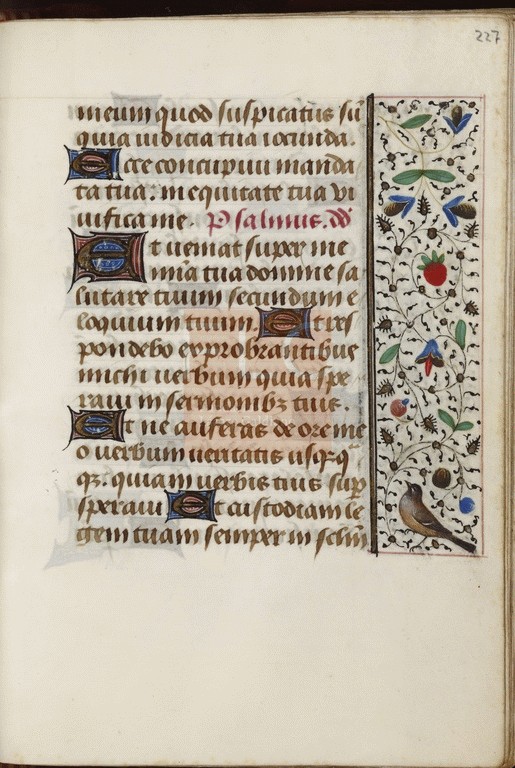 227
meum quod suspicatus sū
quia iudicia tua iocunda.
Ecce concupiui manda
ta tua: in equitate tua vi
uifica me. Psalmus. dd
Et ueniat super me
mīa tua domine sa
lutare tuum secundum e
loquium tuum. Et res
pondebo exprobrantibus
michi uerbum quia spe
raui in sermonibꝫ tuis.
Et ne auferas de ore me
o uerbum ueritatis usqꝫq̄
qꝫ. quia in uerbis tuis sup
speraui Et custodiam le
gem tuam semper in sclm̄